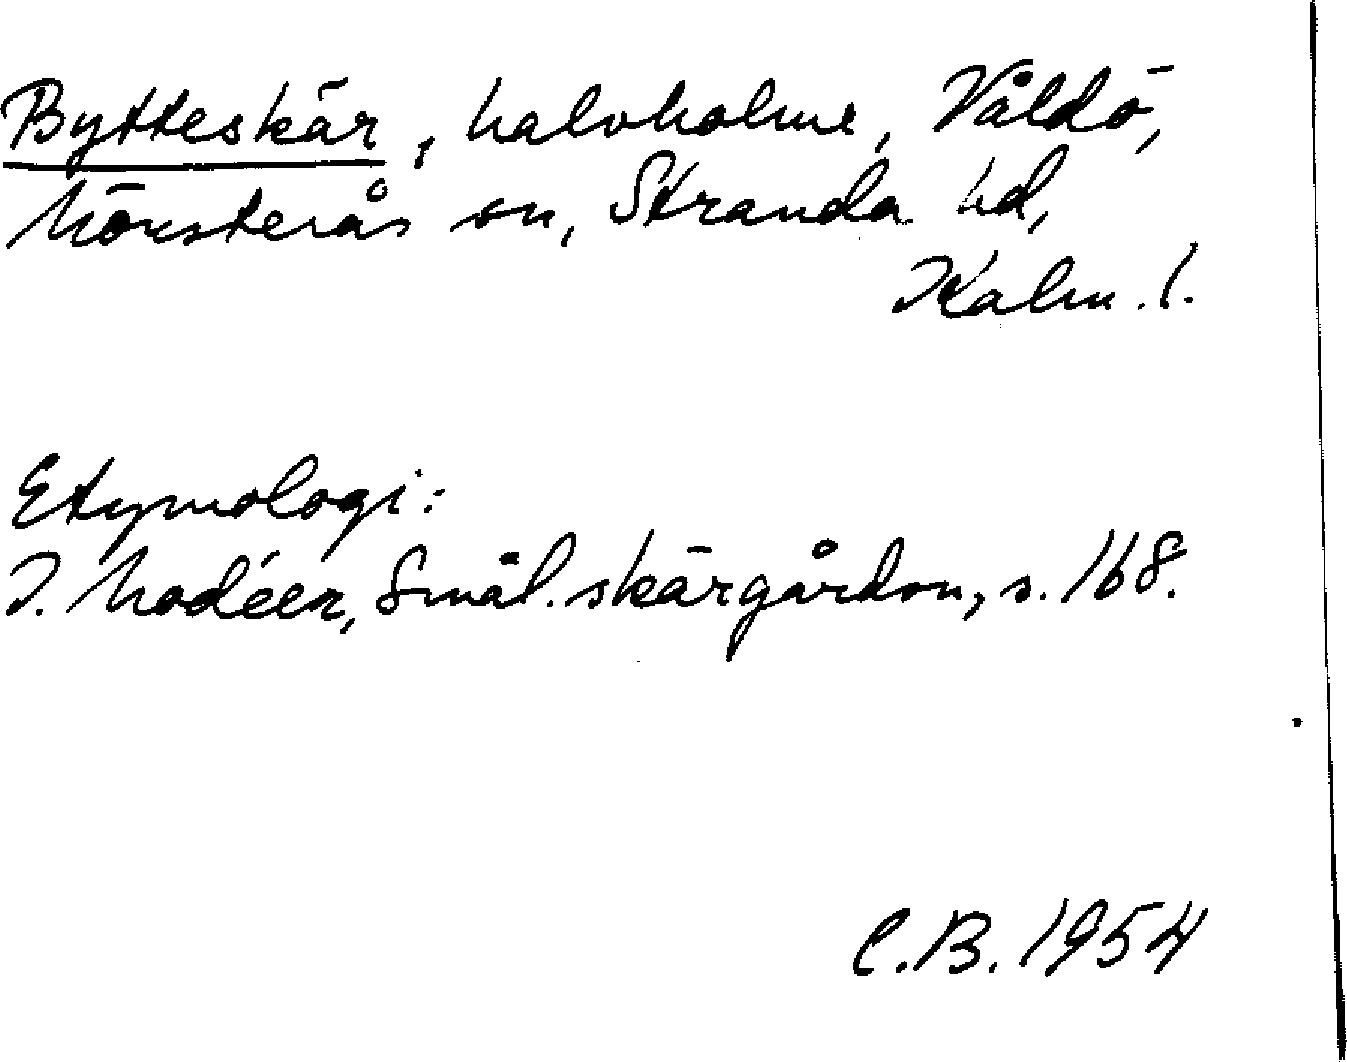 Bytteskär, halvholme, Våldö,
Mönsterås sn, Stranda hd,
Kalm. l.
Etymologi:
I. Modéer, Smål. skärgårdsn, s. 168.
C.B. 1954